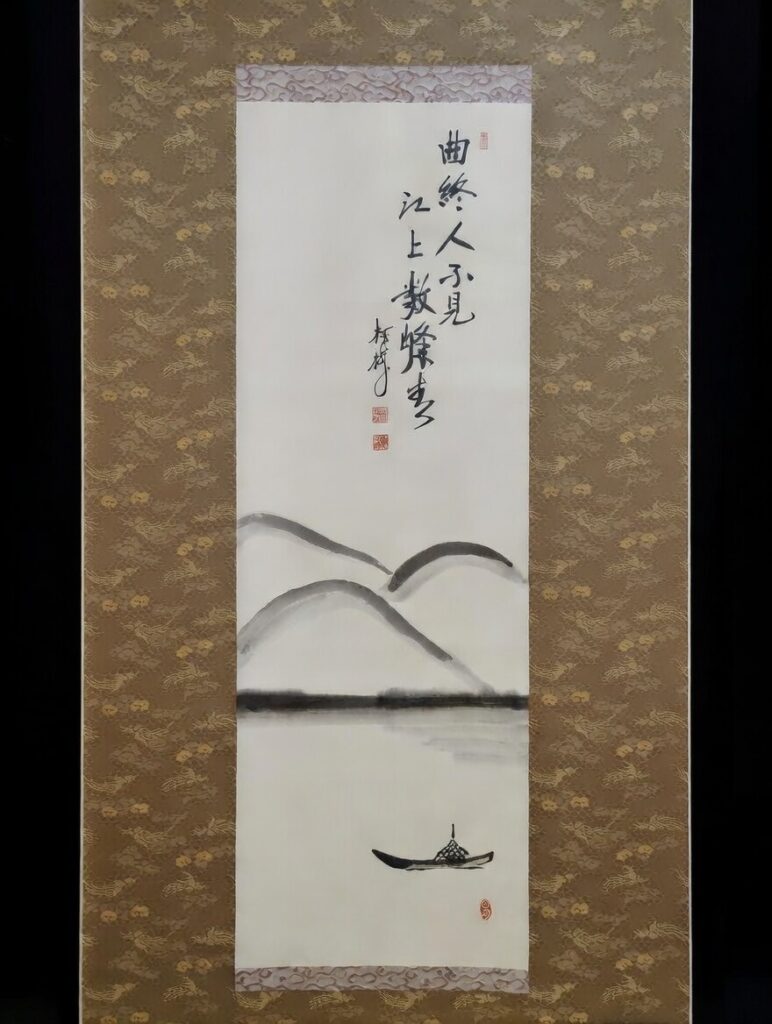 曲終人不見
江上数峰青